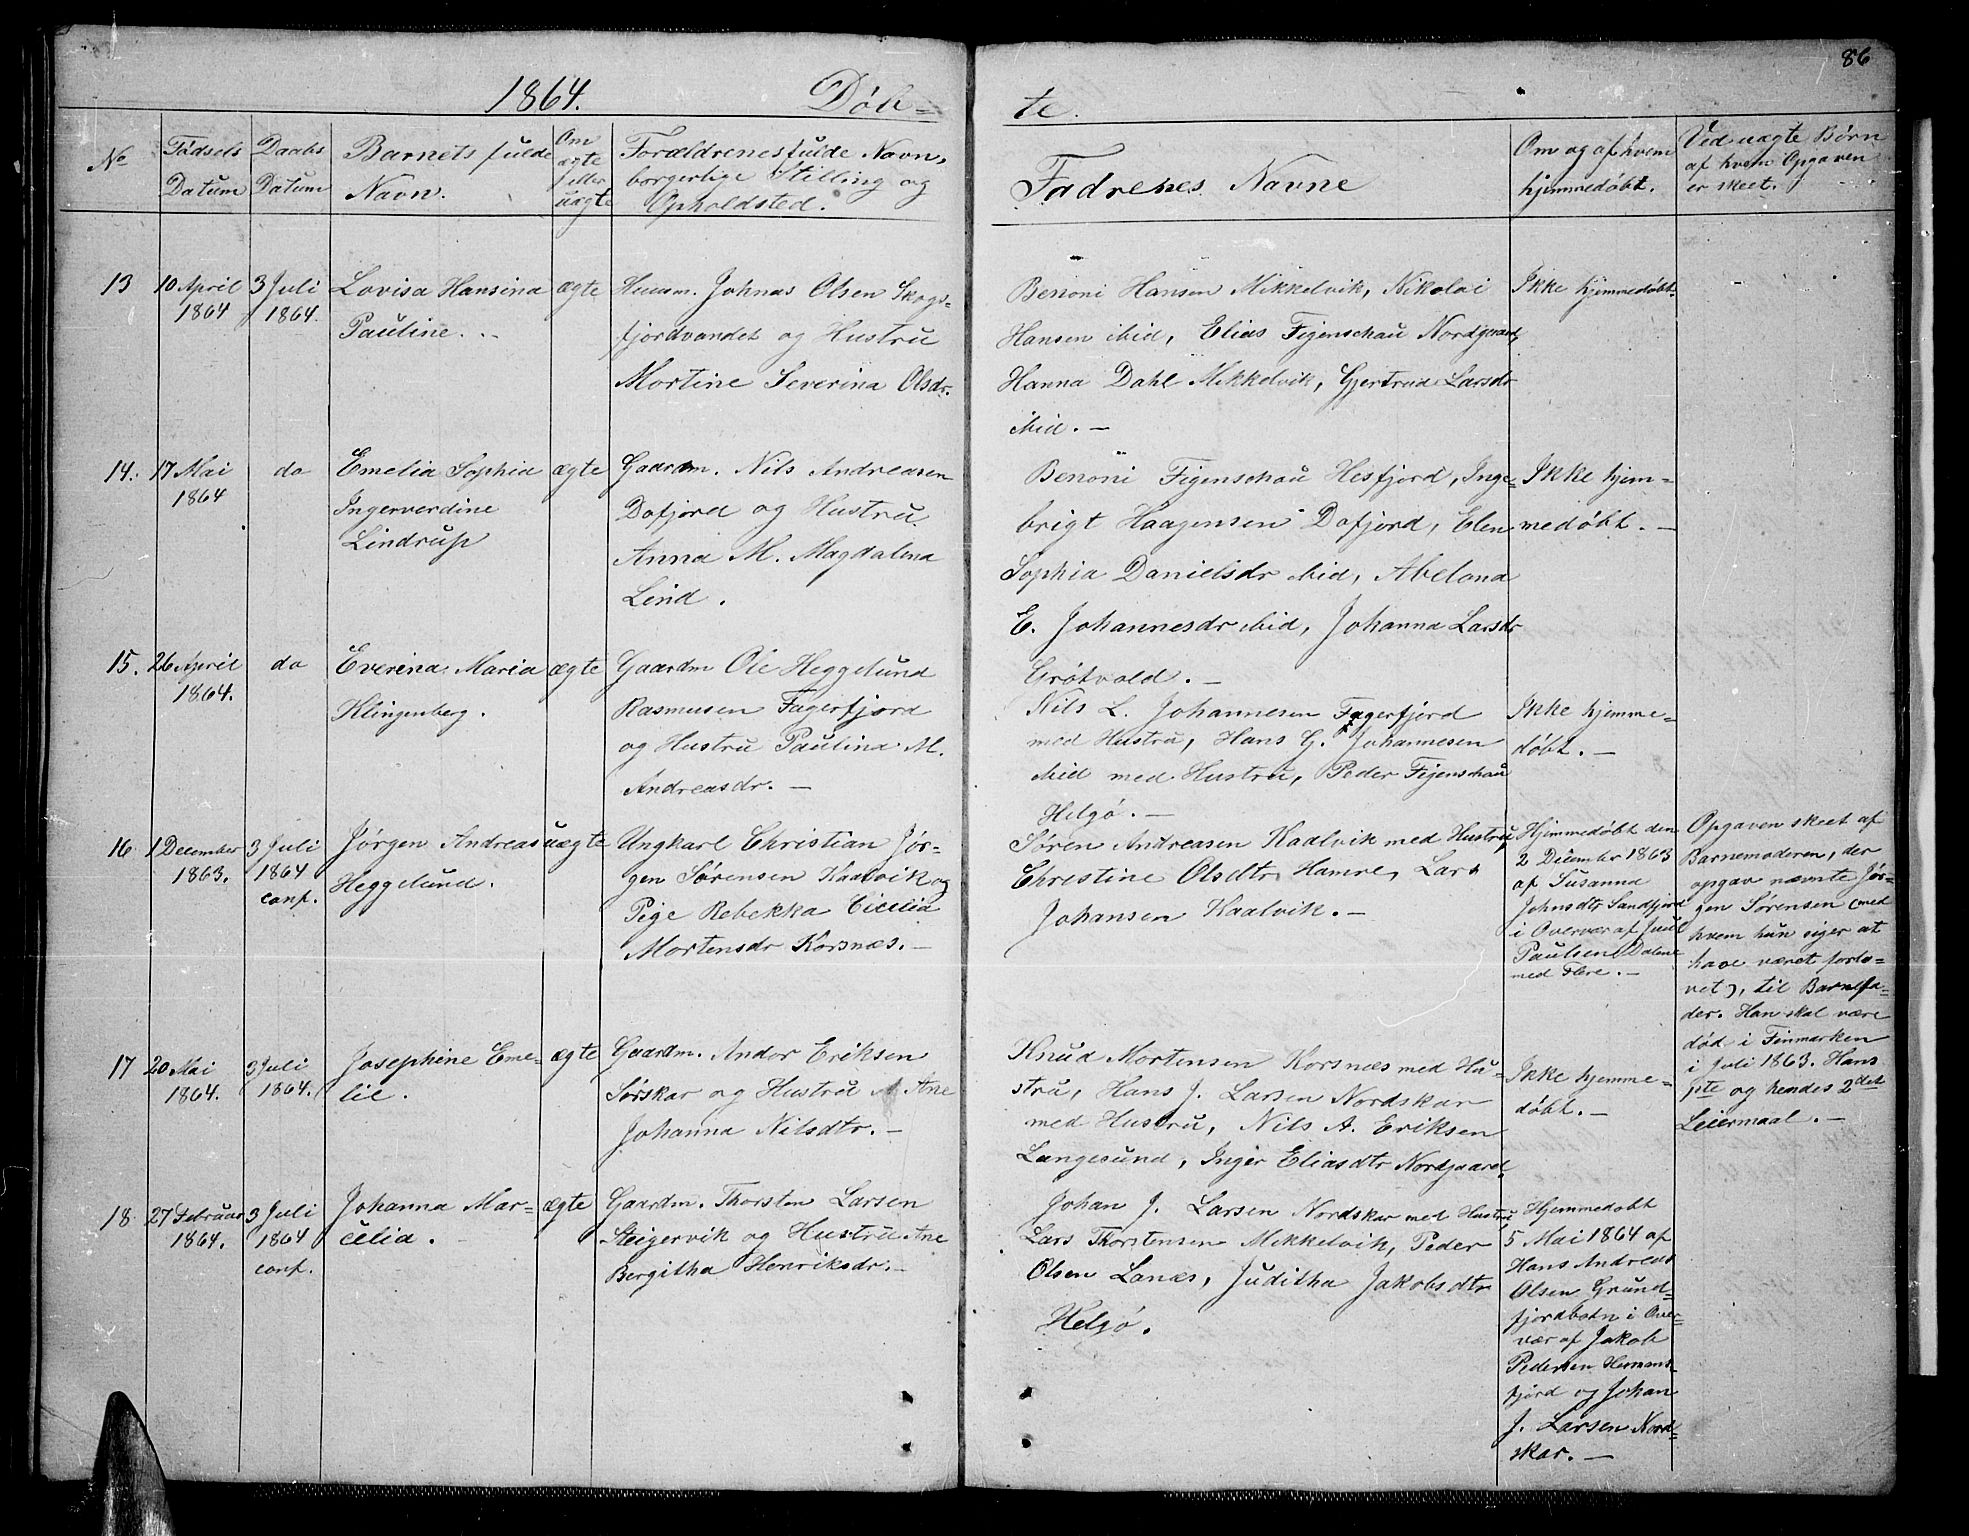 86
1864. Døb=
te.
No
Fødsels
Datum
Daabs
Datum
Barnets fulde
Navn.
Om
ægte
eller
uægte
Forældrenes fulde Navn,
borgerlige Stilling og
Opholdsted.
Fadrenes Navne
Om og af hvem
hjemmedøbt.
Ved uægte Børn
af hvem Opgaven
er skeet.
13
10 April
1864
3 Juli
1864.
Lovisa Hansina
Pauline.
ægte
Huusm. Johnas Olsen Skogs-
fjordvandet og Hustru
Mortine Severina Olsdr.
Benoni Hansen Mikkelvik, Nikolai
Hansen ibid, Elias Figenschau Nordgaard,
Hanna Dahl Mikkelvik, Gjertrud Larsdr
ibid. —
Ikke hjemmedøbt.
14.
17 Mai
1864
do
Emelia Sophia
Ingerverdine
Lindrup
ægte
Gaardm. Nils Andreasen
Dafjord og Hustru
Anna M. Magdalena
Lind.
Benoni Figenschau Hesfjord, Inge-
brigt Haagensen Dafjord, Elen
Sophia Danielsdr ibid, Abelona
E. Johannesdr ibid, Johanna Larsdr
Grøtvold. —
Ikke hjem=
medøbt. —
15.
26 April
1864.
do
Everina Maria
Klingenberg.
ægte
Gaardm Ole Heggelund
Rasmusen Fagerfjord
og Hustru Paulina M.
Andreasdr. —
Nils L. Johannesen Fagerfjord
med Hustru, Hans G. Johannesen
ibid med Hustru, Peder Figenschau
Helgø. —
Ikke hjemme=
døbt. —
16
1 December
1863.
3 Juli
1864
conf.
Jørgen Andreas
Heggelund.
uægte
Ungkarl Christian Jør-
gen Sørensen Kaalvik og
Pige Rebekka Cicilia
Mortensdr Korsnæs. —
Søren Andreasen Kaalvik med Hustru,
Christine Olsdtr Hamre, Lars
Johansen Kaalvik. —
Hjemmedøbt den
2 December 1863
af Susanna
Johnsdtr Sandfjord
i Overvær af Juul
Paulsen Dalene
med Flere. —
Opgaven skeet af
Barnemoderen, der
opgav nævnte Jør-
gen Sørensen (med
hvem hun siger at
have været forlo=
vet), til Barnefa=
der. Han skal være
død i Finmarken
i Juli 1863. Hans
1ste og hendes 2det
Leiermaal. —
17
20 Mai
1864.
3 Juli
1864.
Josephine Eme-
lie.
ægte
Gaardm. Andor Eriksen
Sørskar og Hustru A. Ane
Johanna Nilsdtr. —
Knud Mortensen Korsnæs med Hu-
stru, Hans J. Larsen Nordskar
med Hustru, Nils A. Eriksen
Langesund, Inger Eliasdtr Nordgaard.
Ikke hjemme=
døbt. —
18
27 Februar
1864.
3 Juli
1864
conf.
Johanna Mar-
celia.
ægte
Gaardm. Thorsten Larsen
Steigervik og Hustru Ane
Bergitha Henriksdr. —
Johan J. Larsen Nordskar med Hustru
Lars Thorstensen Mikkelvik, Peder
Olsen Lanæs, Juditha Jakobsdtr
Helgø.
Hjemmedøbt
5 Mai 1864 af
Hans Andreas
Olsen Grund=
fjordbotn i Over=
vær af Jakob
Pedersen Hermans=
fjord og Johan
J. Larsen Nord=
skar. —